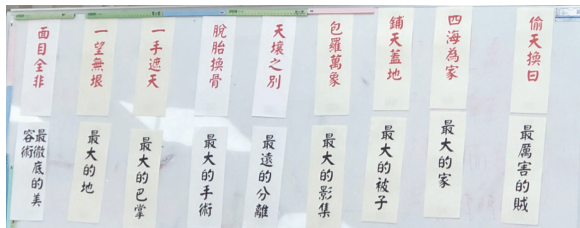 偷天換日
最厲害的賊
四海為家
最大的家
鋪天蓋地
最大的被子
包羅萬象
最大的影集
天壤之別
最遠的分離
脫胎換骨
最大的手術
一手遮天
最大的巴掌
一望無垠
最大的地
面目全非
最徹底的美
容術